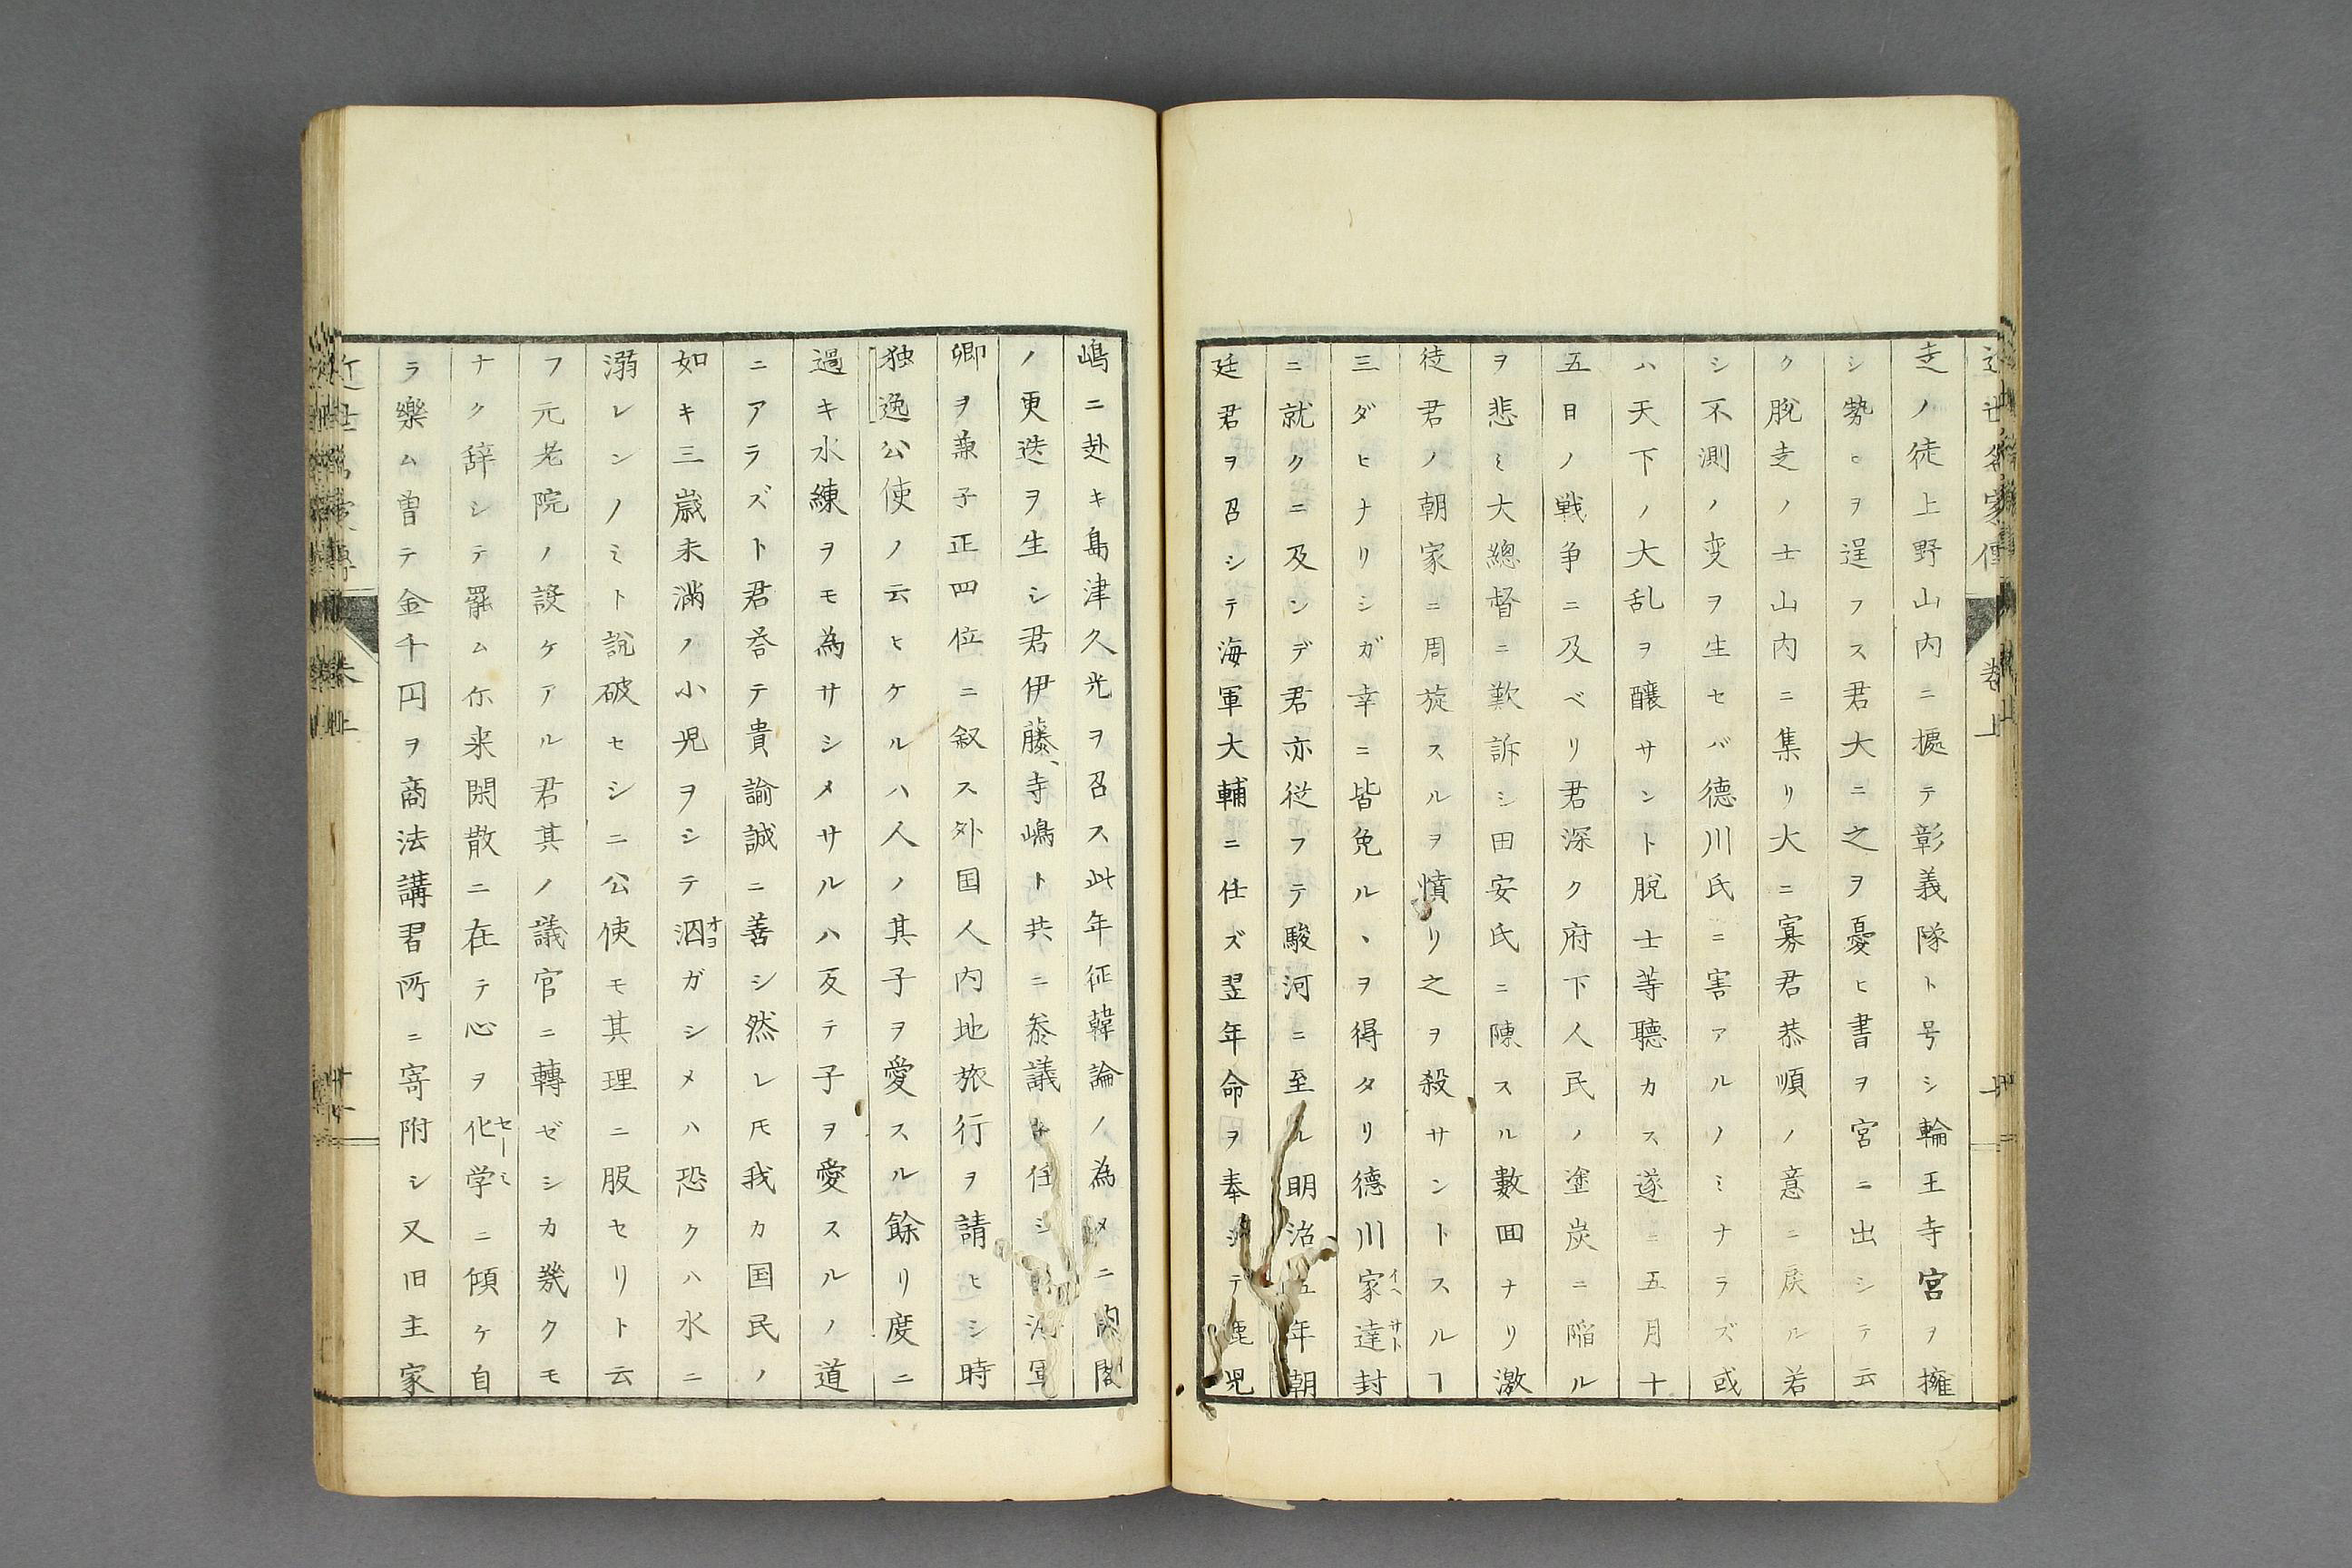 近世名家傳 卷上
走ノ徒上野山内ニ據テ彰義隊ト号シ輪王寺宮ヲ擁
シ勢ヒヲ逞フス君大ニ之ヲ憂ヒ書ヲ宮ニ出シテ云
ク脱走ノ士山内ニ集リ大ニ寡君恭順ノ意ニ戻ル若
シ不測ノ変ヲ生セバ德川氏ニ害アルノミナラズ或
ハ天下ノ大乱ヲ醸サント脱士等聽カス遂ニ五月十
五日ノ戦争ニ及ベリ君深ク府下人民ノ塗炭ニ陥ル
ヲ悲ミ大總督ニ歎訴シ田安氏ニ陳スル數囬ナリ激
徒君ノ朝家ニ周旋スルヲ憤リ之ヲ殺サントスルヿ
三ダヒナリシガ幸ニ皆免ルヽヲ得タリ德川家達封
ニ就クニ及ンデ君亦従フテ駿河ニ至ル明治五年朝
廷君ヲ召シテ海軍大輔ニ任ズ翌年命ヲ奉シテ鹿児
嶋ニ赴キ島津久光ヲ召ス此年征韓論ノ為メニ内閣
ノ更迭ヲ生シ君伊藤、寺嶋ト共ニ参議ニ任シ海軍
卿ヲ兼子正四位ニ叙ス外国人内地旅行ヲ請ヒシ時
独逸公使ノ云ヒケルハ人ノ其子ヲ愛スル餘リ度ニ
過キ水練ヲモ為サシメサルハ反テ子ヲ愛スルノ道
ニアラズト君答テ貴諭誠ニ善シ然レ𪜈我カ国民ノ
如キ三歳未満ノ小児ヲシテ泅ガシメハ恐クハ水ニ
溺レンノミト説破セシニ公使モ其理ニ服セリト云
フ元老院ノ設ケアル君其ノ議官ニ轉ゼシカ幾クモ
ナク辞シテ罷ム尓来閑散ニ在テ心ヲ化学ニ傾ケ自
ラ樂ム曽テ金千円ヲ商法講習所ニ寄附シ又旧主家